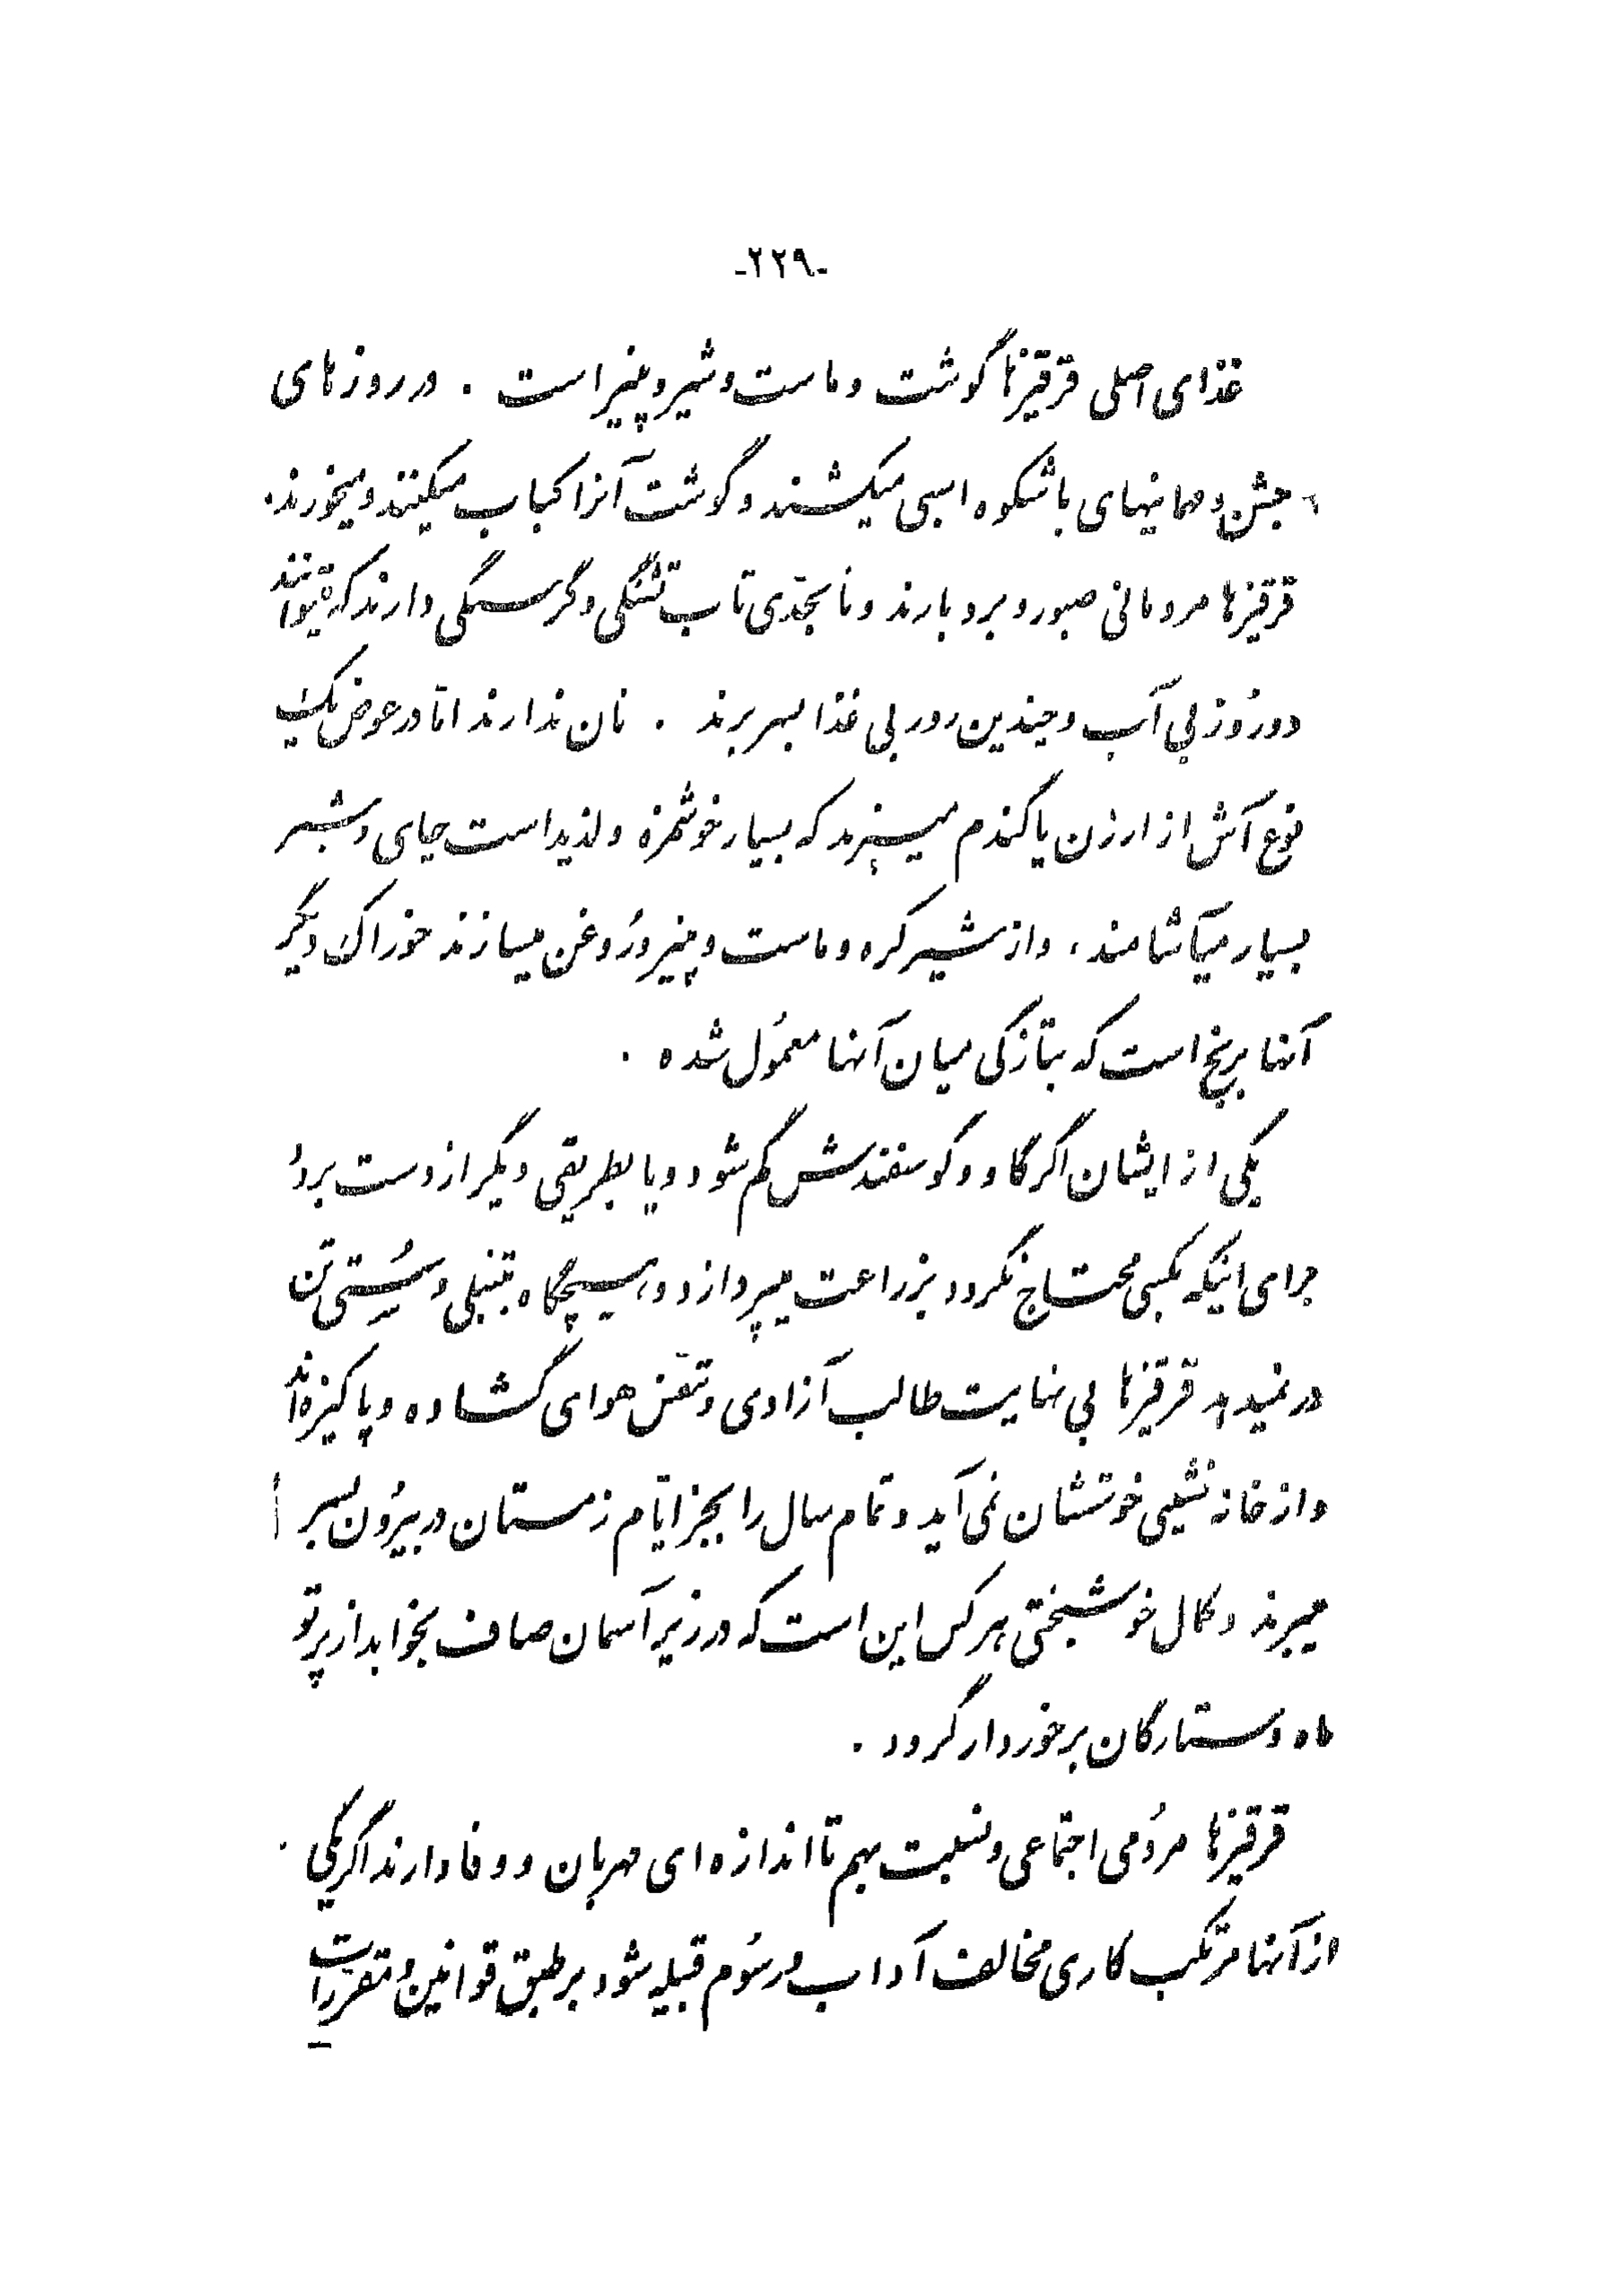 -۲۲۹-
غذای اصلی قرقیزها گوشت و ماست و شیر و پنیر است . در روزهای
جشن و مهمانیهای باشکوه اسبی میکشند و گوشت آنرا کباب میکنند و میخورند.
قرقیزها مردمانی صبور و بردبارند و تا بحدّی تاب تشنگی و گرسنگی دارند که میتوانند
دو روز بی آب و چندین روز بی غذا بسر برند . نان ندارند امّا در عوض یک
نوع آش از ارزن یا گندم میپزند که بسیار خوشمزه و لذیذ است چای و شیر
بسیار میآشامند ، و از شیر کره و ماست و پنیر و رُوغن میسازند خوراک دیگر
آنها برنج است که بتازگی میان آنها معمُول شده .
یکی از ایشان اگر گاو و گوسفندش گم شود و یا بطریقی دیگر از دست برود
برای اینکه بکسی محتاج نگردد بزراعت میپردازد و هیچگاه بتنبلی و سُستی تن
در نمیدهد قرقیزها بی نهایت طالب آزادی و تنفّس هوای گشاده و پاکیزه‌اند
و از خانه نشینی خوششان نمی آید و تمام سال را بجز ایّام زمستان در بیرُون بسر
میبرند و کمال خوشبختی هر کس این است که در زیر آسمان صاف بخوابد از پرتو
ماه و ستارگان برخوردار گردد .
قرقیزها مردُمی اجتماعی و نسبت بهم تا اندازه ای مهربان و وفادارند اگر یکی
از آنها مرتکب کاری مخالف آداب و رسُوم قبیله شود بر طبق قوانین و مقررات